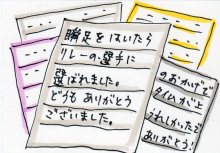 瞬足をはいたら
リレーの選手に
選ばれました。
どうも ありがとう
ございました。
のおかげで
タイムが上
うれしかった
ありがとう!